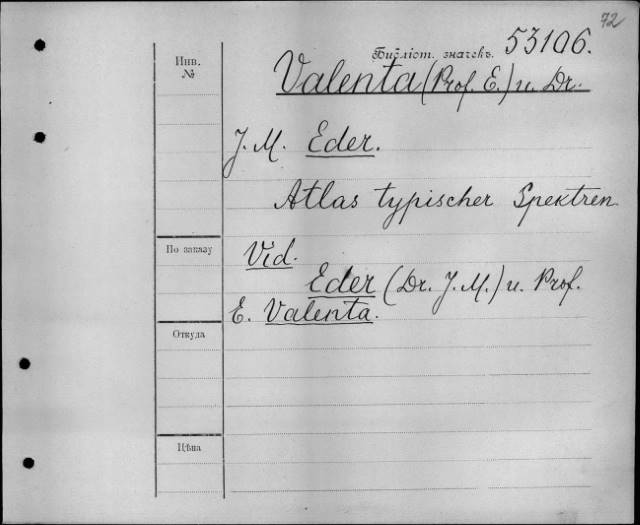 72
Библіот. значекъ. 53106.
Инв. №
Valenta (Prof. E.) u. Dr.
J. M. Eder.
Atlas typischer Spektren.
По заказу
Vid.
Eder (Dr. J. M.) u. Prof.
E. Valenta.
Откуда
Цѣна